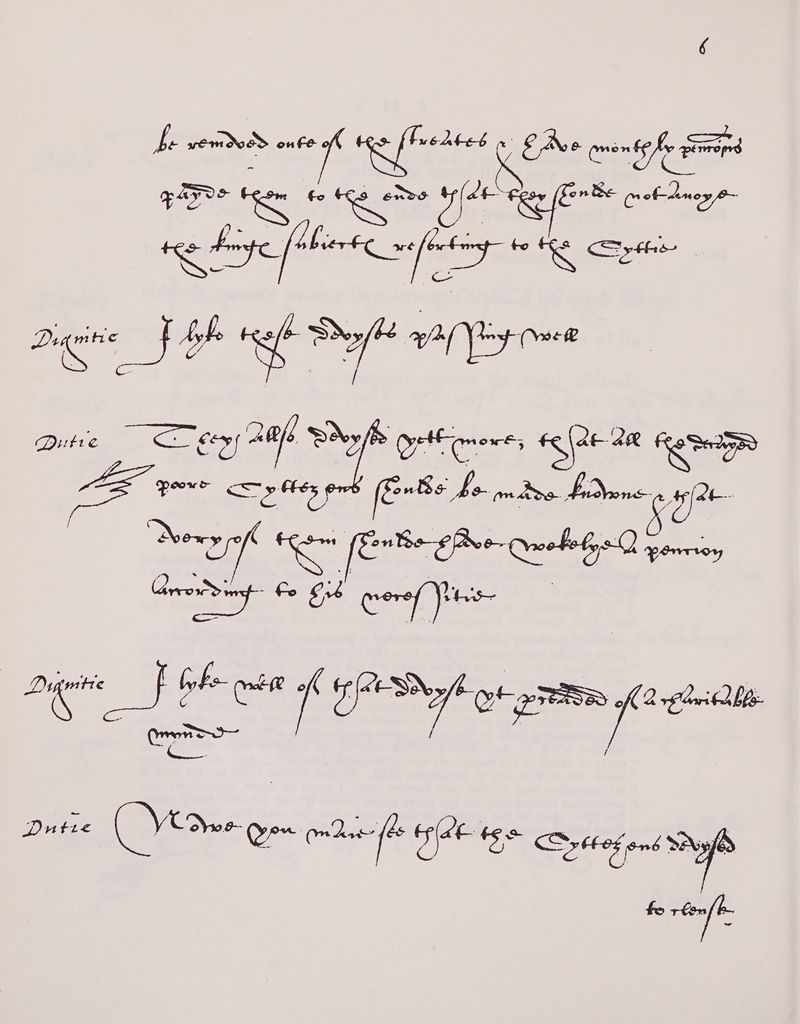 6
be removed oute of the streates & have monthly pencions
payde them to the ende that they sholde not anoye
the kinge subiecte resorting to the Cyttie
Dignitie I lyke these devyses passing well
Dutie They allso devysed yett more, that all the decayed
poore Cyttezens sholde be made knowne & that
every of them sholde have wekelye A pencion
According to his necessitie
Dignitie I lyke well of that devyse yt preaded of A charitable
mynde
Dutie Nowe you maie see that the Cyttezens devysed
to clense